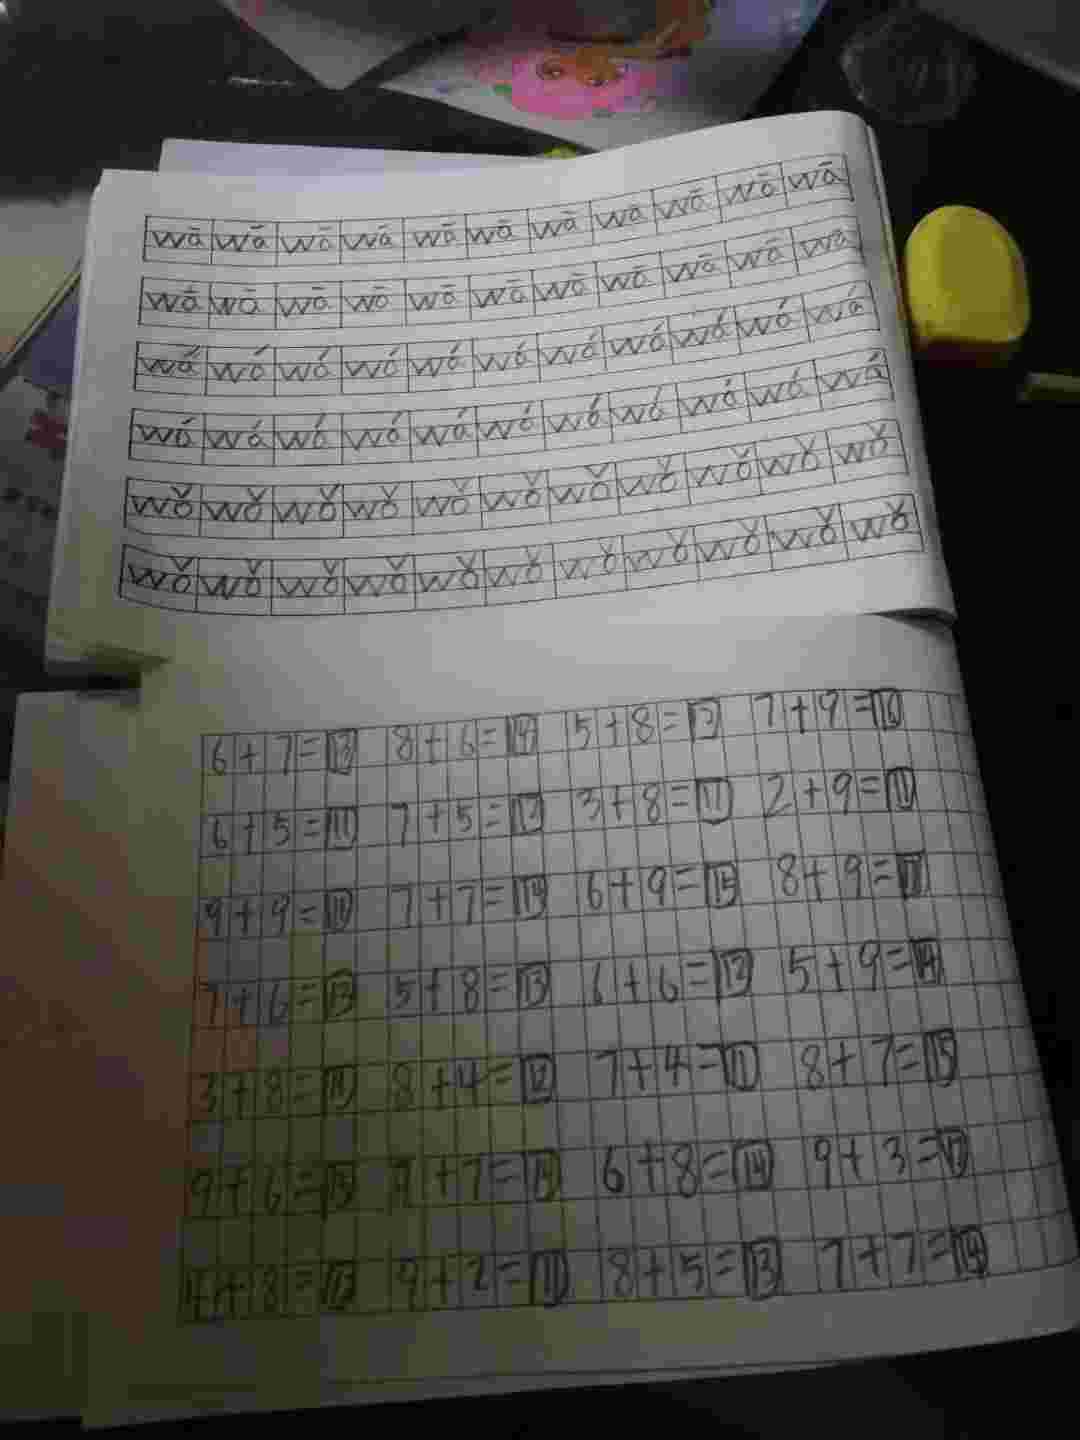 wā wā wā wā wā wā wā wā wā wā wā
wā wā wā wā wā wā wā wā wā wā wā
wá wá wá wá wá wá wá wá wá wá wá
wá wá wá wá wá wá wá wá wá wá wá
wǒ wǒ wǒ wǒ wǒ wǒ wǒ wǒ wǒ wǒ wǒ
wǒ wǒ wǒ wǒ wǒ wǒ wǒ wǒ wǒ wǒ wǒ
6+7=13 8+6=14 5+8= 7+9=16
6+5=11 7+5= 3+8=11 2+9=11
9+9= 7+7=14 6+9=15 8+9=
7+6=13 5+8=13 6+6=12 5+9=14
3+8=11 8+4=12 7+4=11 8+7=15
9+6= 7+7=14 6+8=14 9+3=12
4+8= 9+2=11 8+5=13 7+7=14